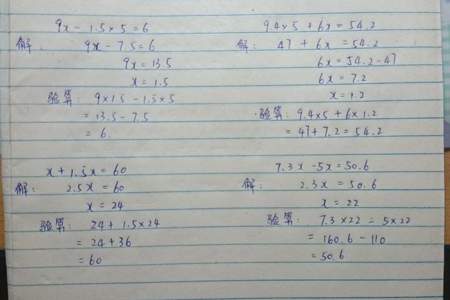 9x - 1.5×5=6
解: 9x - 7.5=6
9x=13.5
x=1.5
验算: 9×1.5-1.5×5
=13.5-7.5
=6.
9.4×5+6x=54.2
解: 47+6x=54.2
6x=54.2-47
6x=7.2
x=1.2
验算: 9.4×5+6×1.2
=47+7.2=54.2
x+1.5x=60
解: 2.5x=60
x=24
验算: 24+1.5×24
=24+36
=60
7.3x-5x=50.6
解: 2.3x=50.6
x=22
验算: 7.3×22=5×22
=160.6-110
=50.6